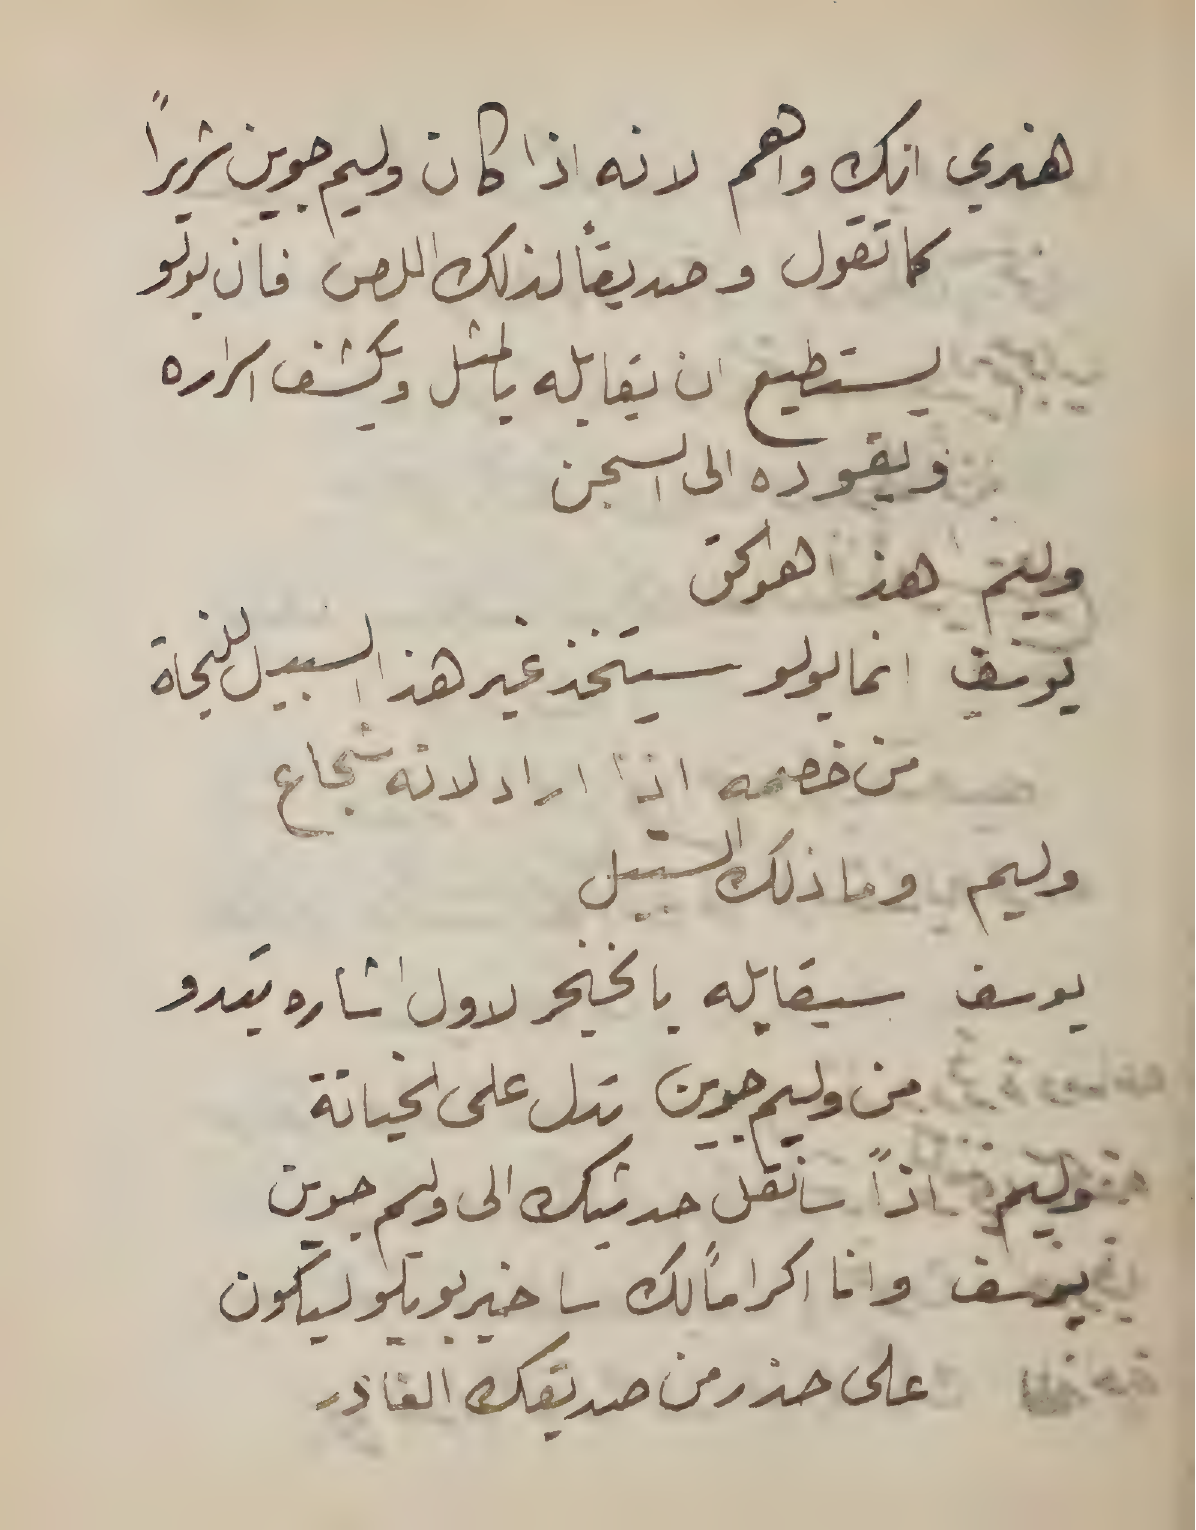 هندي انك واهم لانه اذا كان وليم جوين شريراً
كما تقول وصديقاً لذلك اللص فان بولو
يستطيع ان يقابله بالمثل ويكشف اسراره
ويقوده الى السجن
وليم هذا هو الحق
يوسف انما بولو سيتخذ غير هذا السبيل للنجاة
من خصمه اذا اراد لانه شجاع
وليم وما ذلك السبيل
يوسف سيقابله بالخنجر لاول اشاره تبدو
من وليم جوين تدل على الخيانة
وليم اذاً سانقل حديثك الى وليم جوين
يوسف وانا اكراماً لك ساخبر بوبلو ليكون
على حذر من صديقك الغادر